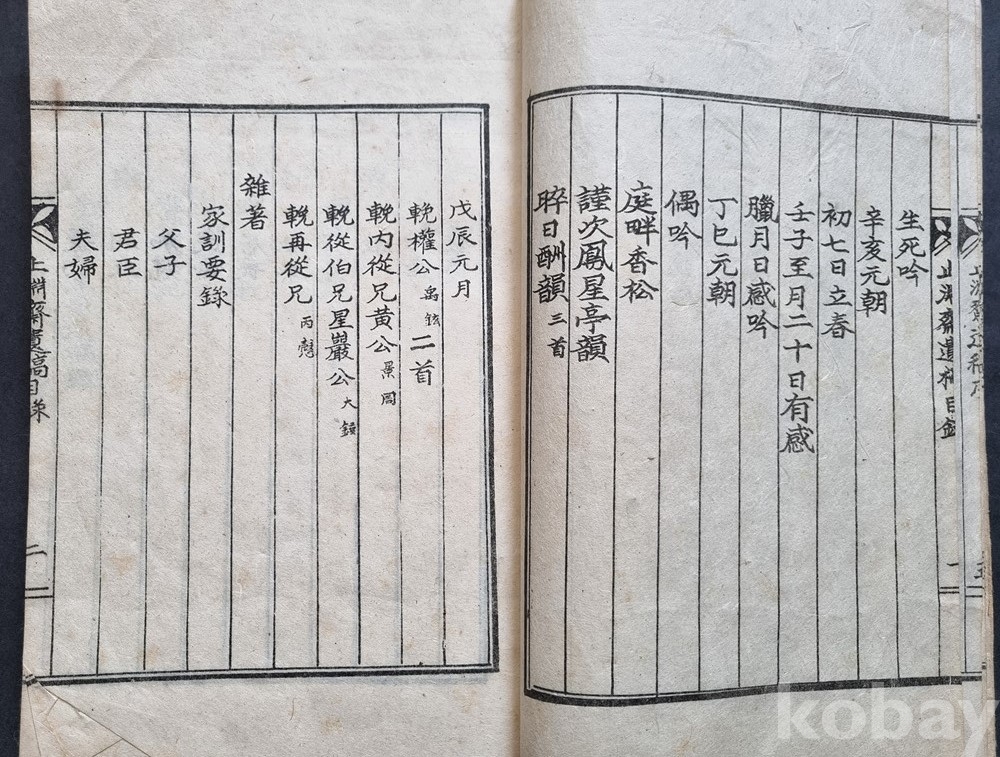 生死吟
辛亥元朝
初七日立春
壬子至月二十日有感
臘月日感吟
丁巳元朝
偶吟
庭畔香松
謹次鳳星亭韻
晬日酬韻 三首
戊辰元月
輓權公 禹鉉 二首
輓内從兄黃公 景
輓從伯兄星巖公 大
輓再從兄 丙
雜著
家訓要錄
父子
君臣
夫婦
齋遺稿目錄
二
齋遺稿目錄
一
kobay